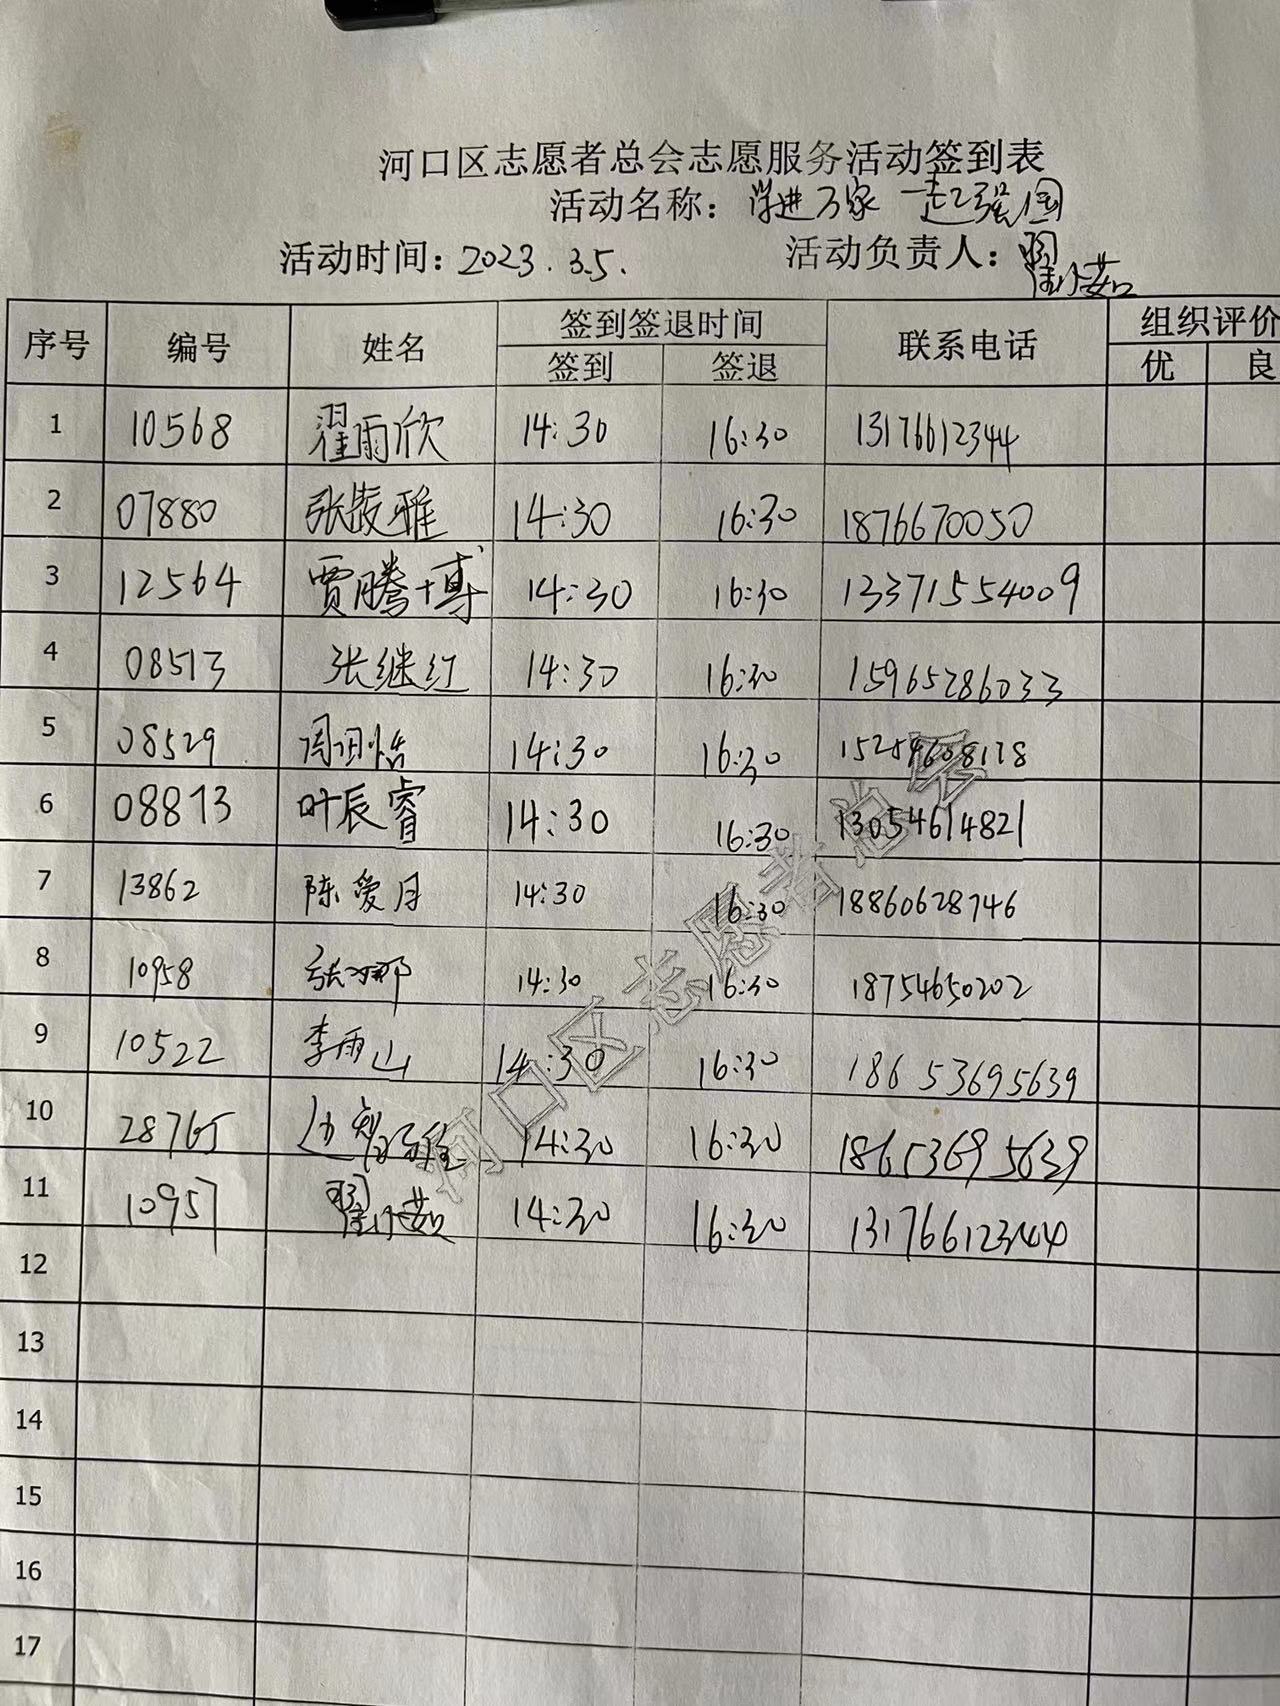 河口区志愿者总会志愿服务活动签到表
活动名称：学进万家 一起强国
活动时间：2023.3.5. 活动负责人：翟小茹
序号 编号 姓名 签到签退时间 联系电话 组织评价
签到 签退 优 良
1 10568 翟雨欣 14:30 16:30 13176612344
2 07880 张筱雅 14:30 16:30 1876670050
3 12564 贾腾博 14:30 16:30 13371554009
4 08513 张继红 14:30 16:30 15965286033
5 08529 周玥怡 14:30 16:30 15254608118
6 08813 叶辰睿 14:30 16:30 13054614821
7 13862 陈爱月 14:30 16:30 18860628746
8 10958 张娜 14:30 16:30 18754650202
9 10522 李雨山 14:30 16:30 18653695639
10 28765 14:30 16:30 18653695639
11 10957 翟小茹 14:30 16:30 13176612344
12
13
14
15
16
17
河口区志愿者总会